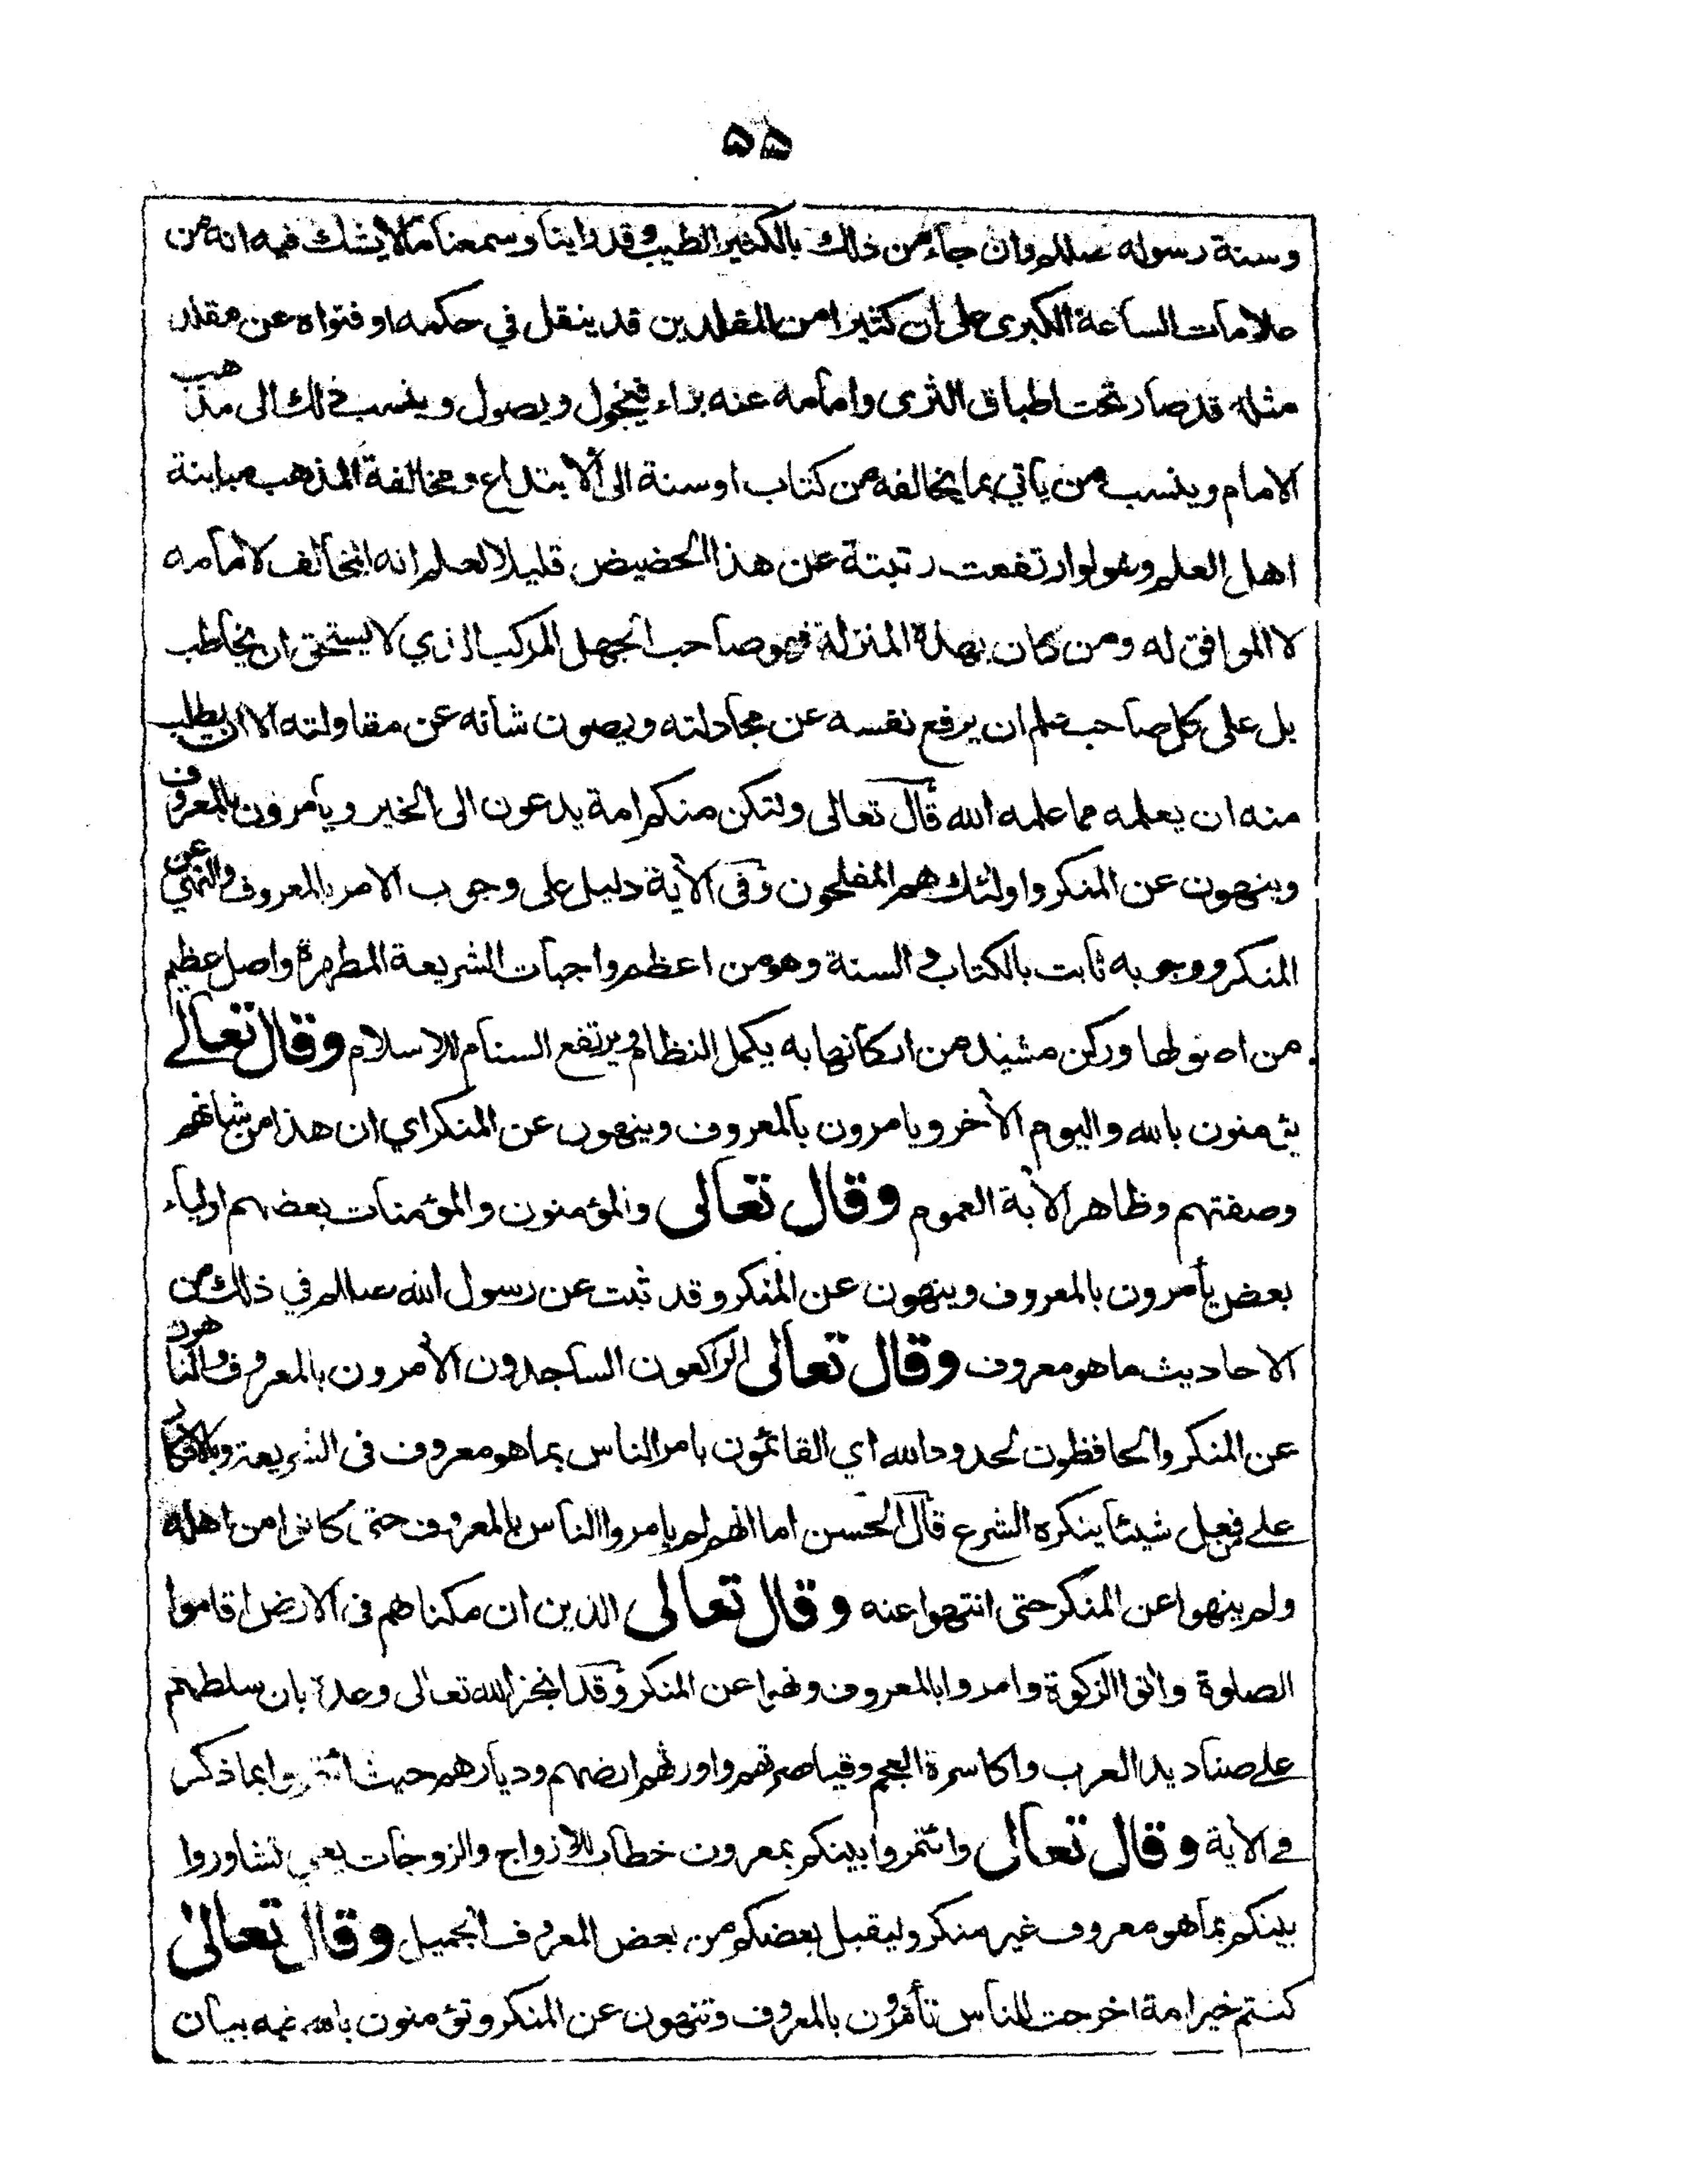 ۵۵
وسنة رسوله صللم وان جاء من ذلك بالكثير الطيب وقد راينا وسمعنا مالا يشك فيه انه من
علامات الساعة الكبرى على ان كثيرا من المقلدين قد ينقل في حكمه او فتواه عن مقلد
مثله قد صار تحت اطباق الثرى وامامه عنه براء فيجول ويصول وينسب ذلك الى مذهب
الامام وينسب من ياتي بما يخالفه من كتاب او سنة الى الابتداع ومخالفة المذهب مباينة
اهل العلم وهو لوارتفعت رتبتة عن هذا الحضيض قليلا لعلم انه المخالف لامامه
لا الموافق له ومن كان بهذه المنزلة فهو صاحب الجهل المركب الذي لا يستحق ان يخاطب
بل على كل صاحب علم ان يرفع نفسه عن مجادلته ويصون شانه عن مقاولته الا ان يطلب
منه ان يعلمه مما علمه الله قال تعالى ولتكن منكم امة يدعون الى الخير ويأمرون بالمعروف
وينهون عن المنكر واولئك هم المفلحون وفى الآية دليل على وجوب الامر بالمعروف والنهي عن
المنكر ووجوبه ثابت بالكتاب والسنة وهو من اعظم واجبات الشريعة المطهرة واصل عظيم
من اصولها وركن مشيد من اركانها به يكمل النظام ويرتفع السنام للاسلام وقال تعالے
يؤمنون بالله واليوم الآخر ويامرون بالمعروف وينهون عن المنكر اي ان هذا من شانهم
وصفتهم وظاهر الآية العموم وقال تعالى والمؤمنون والمؤمنات بعضهم اولياء
بعض يأمرون بالمعروف وينهون عن المنكر وقد ثبت عن رسول الله صللم في ذلك من
الاحاديث ما هو معروف وقال تعالى الراكعون الساجدون الآمرون بالمعروف والناهون
عن المنكر والحافظون لحدود الله اي القائمون بامر الناس بما هو معروف فى الشريعة وبالانكار
علے من فعل شيئا ينكره الشرع قال الحسن اما انهم لم يامروا الناس بالمعروف حتى كانوا من اهله
ولم ينهوا عن المنكر حتى انتهوا عنه وقال تعالى الذين ان مكناهم فى الارض اقاموا
الصلوة واٰتوا الزكوة وامروا بالمعروف ونهوا عن المنكر وقد انجز الله تعالى وعده بان سلطهم
علے صناديد العرب واكاسرة العجم وقياصرتهم واورثهم ارضهم وديارهم حيث ائتمروا بما ذكر
فے الآية وقال تعالى وائتمروا بينكم بمعروف خطاب للازواج والزوجات يعني تشاوروا
بينكم بما هو معروف غير منكر وليقبل بعضكم من بعض المعروف الجميل وقال تعالىٰ
كنتم خير امة اخرجت للناس تأمرون بالمعروف وتنهون عن المنكر وتؤمنون بالله فيه بيان